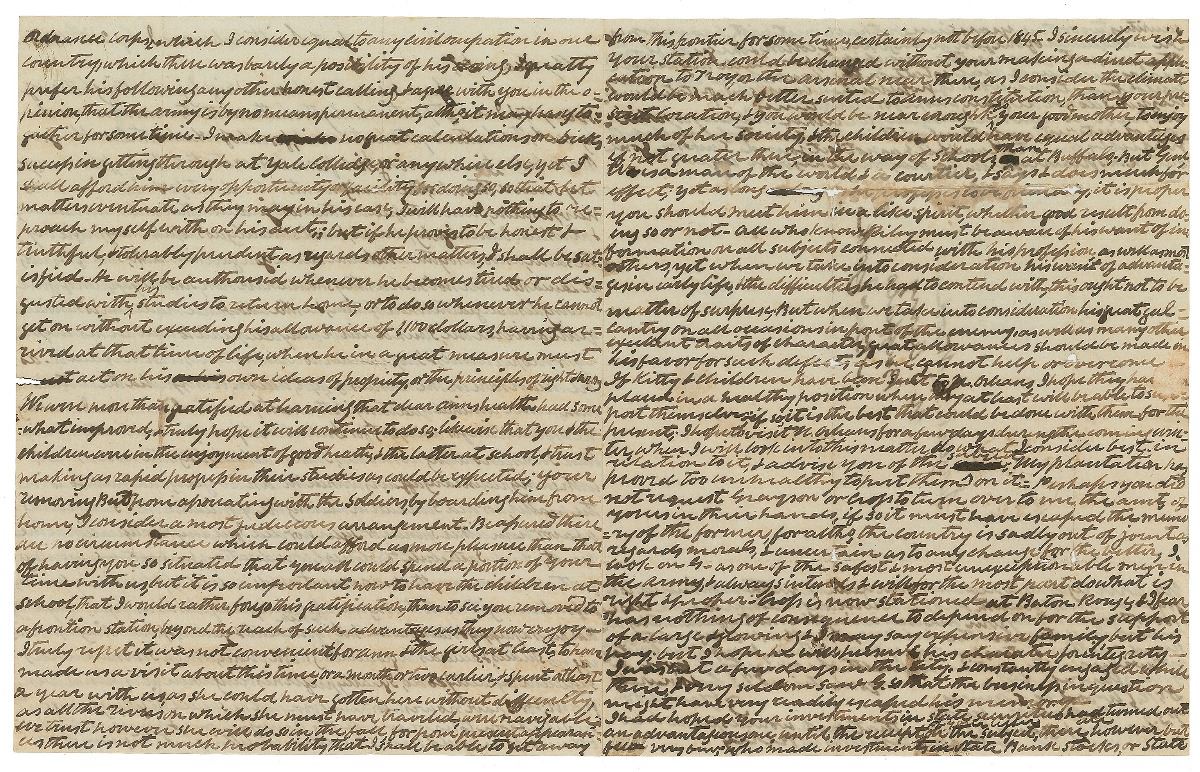 ordnance corps, which I consider equal to any civil occupation in our
country, which there was barely a possibility of his doing, I greatly
prefer his following any other honest calling & agree with you in the o-
pinion, that the army is by no means permanent, altho it may hang to-
gether for some time. I make no great calculations on Dicks
succeeding in getting through at Yale College, or any where else, yet I
shall afford him every opportunity & facility for doing so, so that let
matters eventuate as they may in his case, I will have nothing to re-
proach myself with on his acct.; but if he proves to be honest &
truthful, & tolerably prudent as regards other matters, I shall be sat-
isfied. He will be authorised whenever he becomes tired or dis-
gusted with his studies to return home, or to do so whenever he cannot
get on without exceeding his allowance of 1100 dollars, having ar-
rived at that time of life, when he in a great measure must
act on his own ideas of propriety, or the principles of right & wrong
We were more than gratified at learning that dear Anns health had some
what improved, & truly hope it will continue to do so, likewise that you & the
children were in the enjoyment of good health, & the latter at school & I trust
making as rapid progress in their studies as could be expected; your
removing Bob from associating with the Soldiers by boarding him from
home, I consider a most judicious arrangement. Be assured there
are no circumstance which could afford us more pleasure than that
of having you so situated that you all could spend a portion of your
time with us, but it is so important now to have the children at
school, that I would rather forgo this gratification, than to see you removed to
a frontier station, beyond the reach of such advantages as they now enjoy -
I truly regret it was not convenient for Ann & the girls at least, to have
made us a visit about this time, or a month or two earlier & spent at least
a year with us, as she could have gotten here without difficulty
as all the rivers on which she must have traveled, are navigable
We trust however she will do so in the fall, for from present appearan-
ces there is not much probability that I shall be able to get away
from this frontier for some time, certainly not before 1845. I sincerely wish
your station could be changed without your making a direct appli-
cation to Troy or the arsenal near there, as I consider the climate
would be much better suited to Anns constitution, than is your pre-
sent location, & you would be near enough your good mother to enjoy
much of her society & the children would have equal advantages
if not greater than in the way of schools, than at Buffalo. But Genl
is a man of the world & a courtier, & says & does much for
effect, yet as long it is proper
you should meet him in a like spirit, whether good result from do-
ing so or not - all who know Riley must be aware of his want of in-
formation on all subjects connected with his profession as well as most
others, yet when we take into consideration his want of advanta-
ges in early life, & the difficulties he had to contend with, this ought not to be
matter of surprise, But when we take into consideration his great gal-
lantry on all occasions in front of the enemy, as well as many other
excellent traits of character, great allowance should be made in
his favor for such defects, as he cannot help or overcome
If Kitty & children have gone to N. Orleans, I hope they are
placed in a healthy position where they at least will be able to sup-
port themselves, if so it is the best that could be done with them for the
present; I hope to visit N. Orleans for a few days during the coming win-
ter when I will look into this matter & do what I consider best in
relation to it, & advise you of the same; My plantation has
proved too unhealthy to put them on it - Perhaps you did
not request Grayson or Cross to turn over to me the amt. of
yours in their hands, if so it must have escaped the memo-
ry of the former for altho the country is sadly out of joint as
regards morals, & uncertain as to any change for the better, I
look on G- as one of the safest & most unexceptionable men in
the army & always intends & will for the most part do what is
right & proper. Cross is now stationed at Baton Rouge, & I fear
has nothing of consequence to depend on for the support
of a large & growing & I may say expensive family but his
pay; but I hope he will
I was but a few days in the City & constantly engaged while
there, & very seldom saw G- so that the business in question
might have very readily escaped his memory
I had hoped your investments in state securities had turned out
an advantageous one, until the receipt of the subject, there however but
few very few who made investments in State Bank Stocks, or State